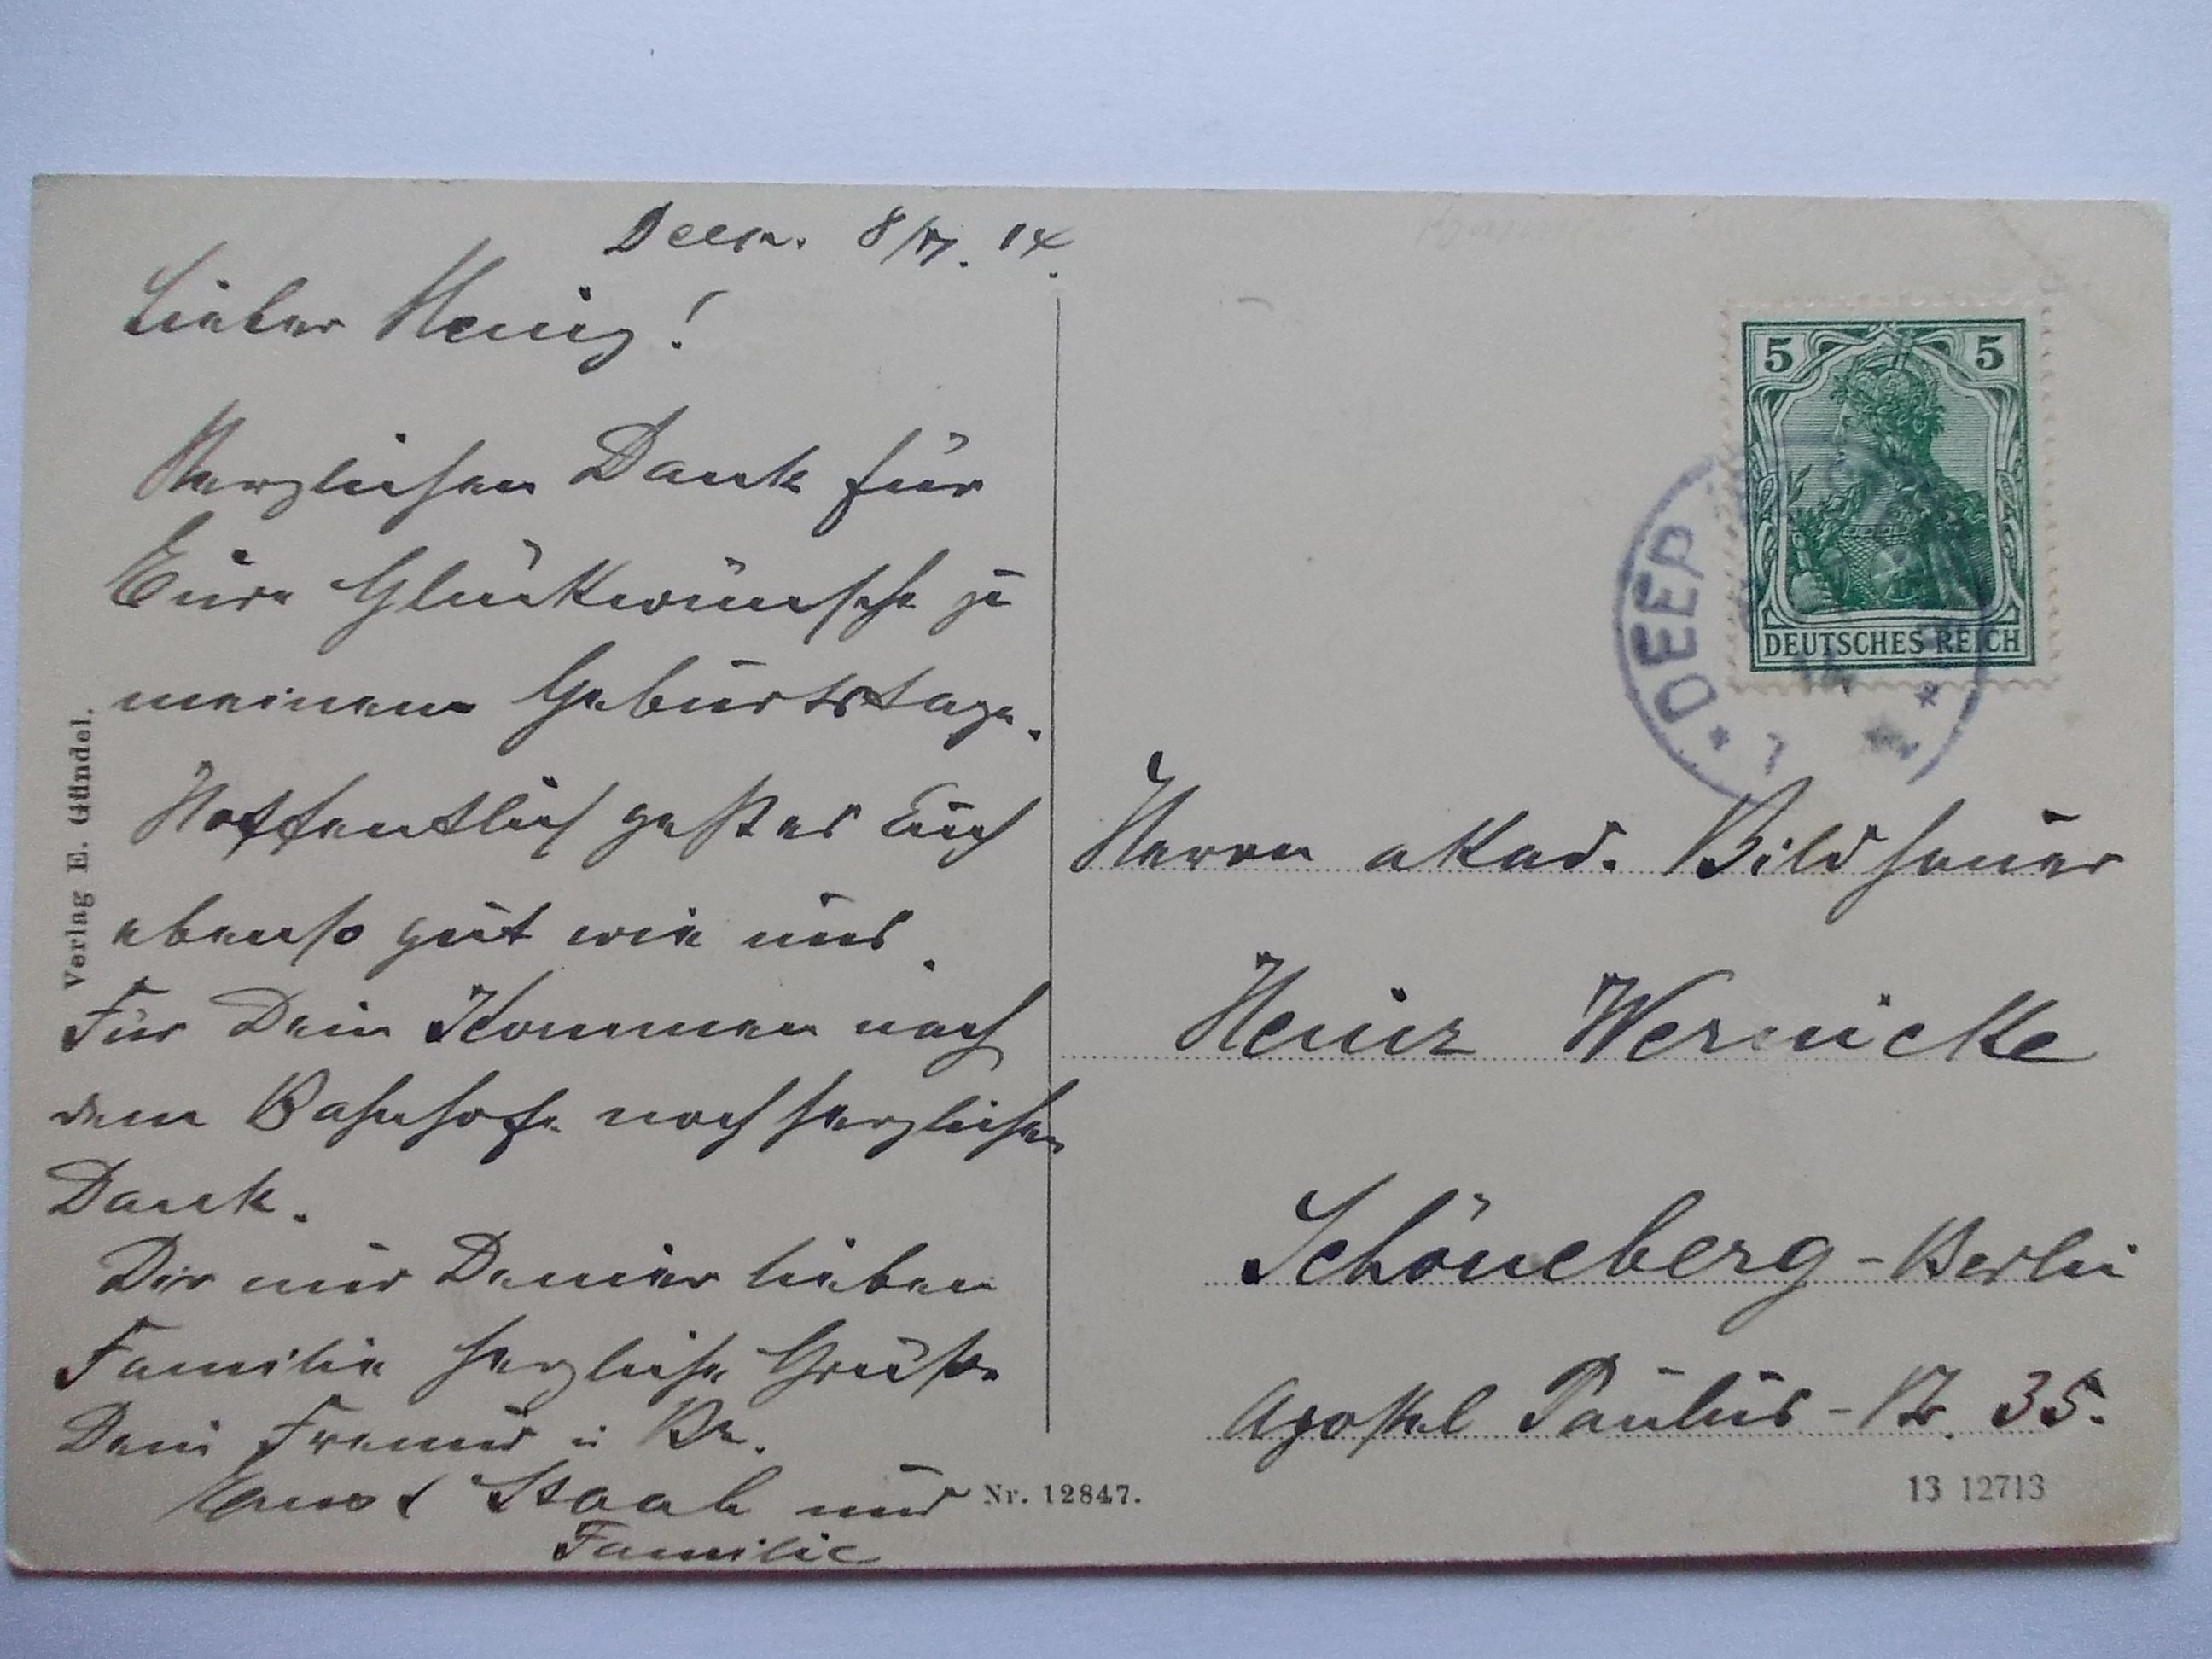 Deep. 8/VII. 14.
Lieber Heinz!
Herzlichen Dank für
Eure Glückwünsche zu
meinem Geburtstage.
Hoffentlich geht es Euch
ebenso gut wie uns.
Für Dein Kommen nach
dem Bahnhofe noch herzlichen
Dank.
Dir und Deiner lieben
Familie herzliche Grüße
Dein Freund u. Br.
Staab und
Familie
Verlag E. Gündel.
Nr. 12847.
5 5
DEUTSCHES REICH
* DEEP
Herrn akad. Bildhauer
Heinz Wernicke
Schöneberg-Berlin
Apostel Paulus-Str. 35.
13 12713